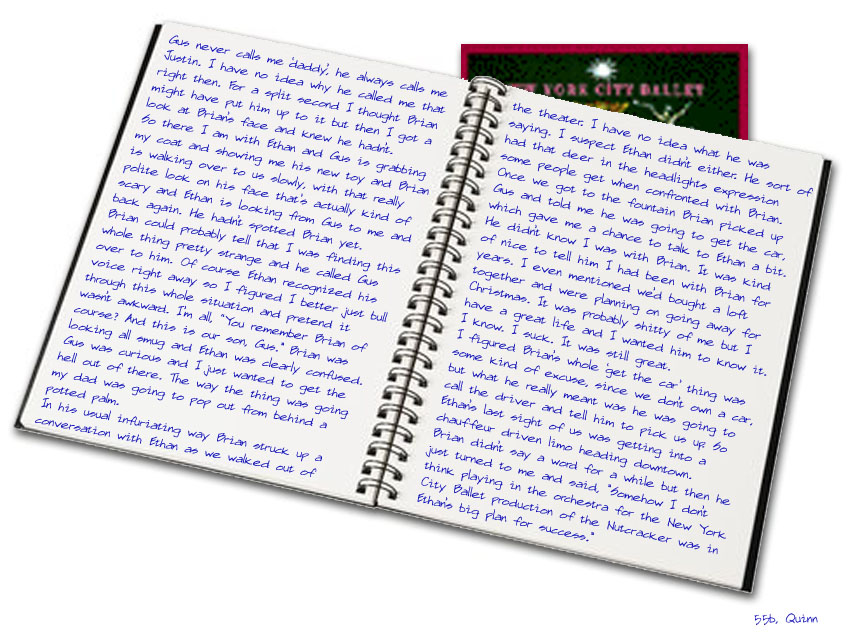 Gus never calls me 'daddy', he always calls me
Justin. I have no idea why he called me that
right then. For a split second I thought Brian
might have put him up to it but then I got a
look at Brian's face and knew he hadn't.
So there I am with Ethan and Gus is grabbing
my coat and showing me his new toy and Brian
is walking over to us slowly, with that really
polite look on his face that's actually kind of
scary and Ethan is looking from Gus to me and
back again. He hadn't spotted Brian yet.
Brian could probably tell that I was finding this
whole thing pretty strange and he called Gus
over to him. Of course Ethan recognized his
voice right away so I figured I better just bull
through this whole situation and pretend it
wasn't awkward. I'm all, "You remember Brian of
course? And this is our son, Gus." Brian was
looking all smug and Ethan was clearly confused.
Gus was curious and I just wanted to get the
hell out of there. The way the thing was going
my dad was going to pop out from behind a
potted palm.
In his usual infuriating way Brian struck up a
conversation with Ethan as we walked out of
NEW YORK CITY BALLET
the theater. I have no idea what he was
saying. I suspect Ethan didn't either. He sort of
had that deer in the headlights expression
some people get when confronted with Brian.
Once we got to the fountain Brian picked up
Gus and told me he was going to get the car,
which gave me a chance to talk to Ethan a bit.
He didn't know I was with Brian. It was kind
of nice to tell him I had been with Brian for
years. I even mentioned we'd bought a loft
together and were planning on going away for
Christmas. It was probably shitty of me but I
have a great life and I wanted him to know it.
I know. I suck. It was still great.
I figured Brian's whole 'get the car' thing was
some kind of excuse, since we don't own a car,
but what he really meant was he was going to
call the driver and tell him to pick us up. So
Ethan's last sight of us was getting into a
chauffeur driven limo heading downtown.
Brian didn't say a word for a while but then he
just turned to me and said, "Somehow I don't
think playing in the orchestra for the New York
City Ballet production of the Nutcracker was in
Ethan's big plan for success."
556, Quinn